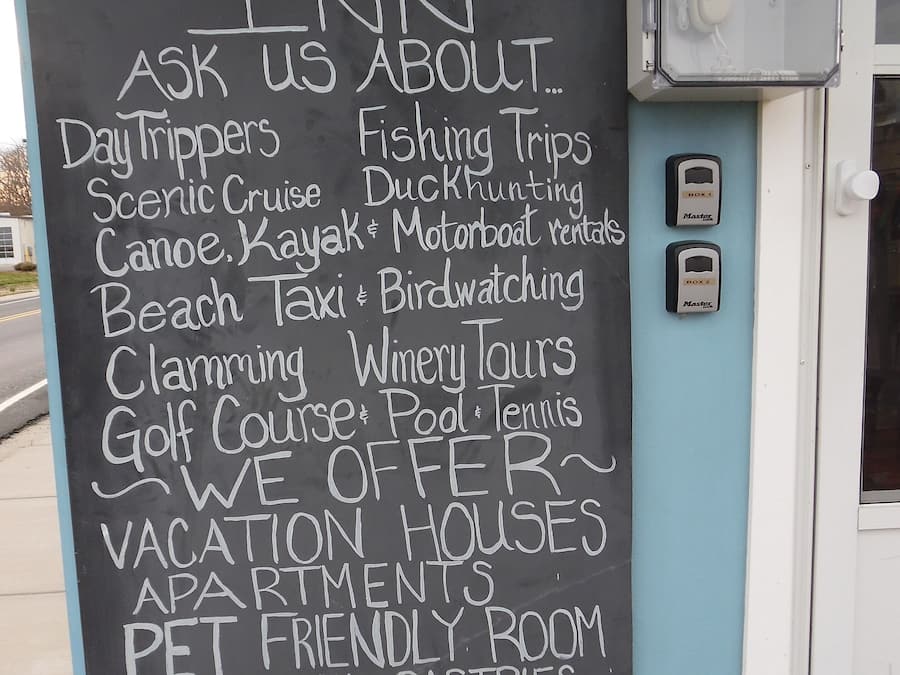 INN
ASK US ABOUT...
Day Trippers Fishing Trips
Scenic Cruise Duckhunting
Canoe, Kayak & Motorboat rentals
Beach Taxi & Birdwatching
Clamming Winery Tours
Golf Course & Pool & Tennis
~WE OFFER~
VACATION HOUSES
APARTMENTS
PET FRIENDLY ROOM
PASTRIES
BOX 1
Master
BOX 2
Master